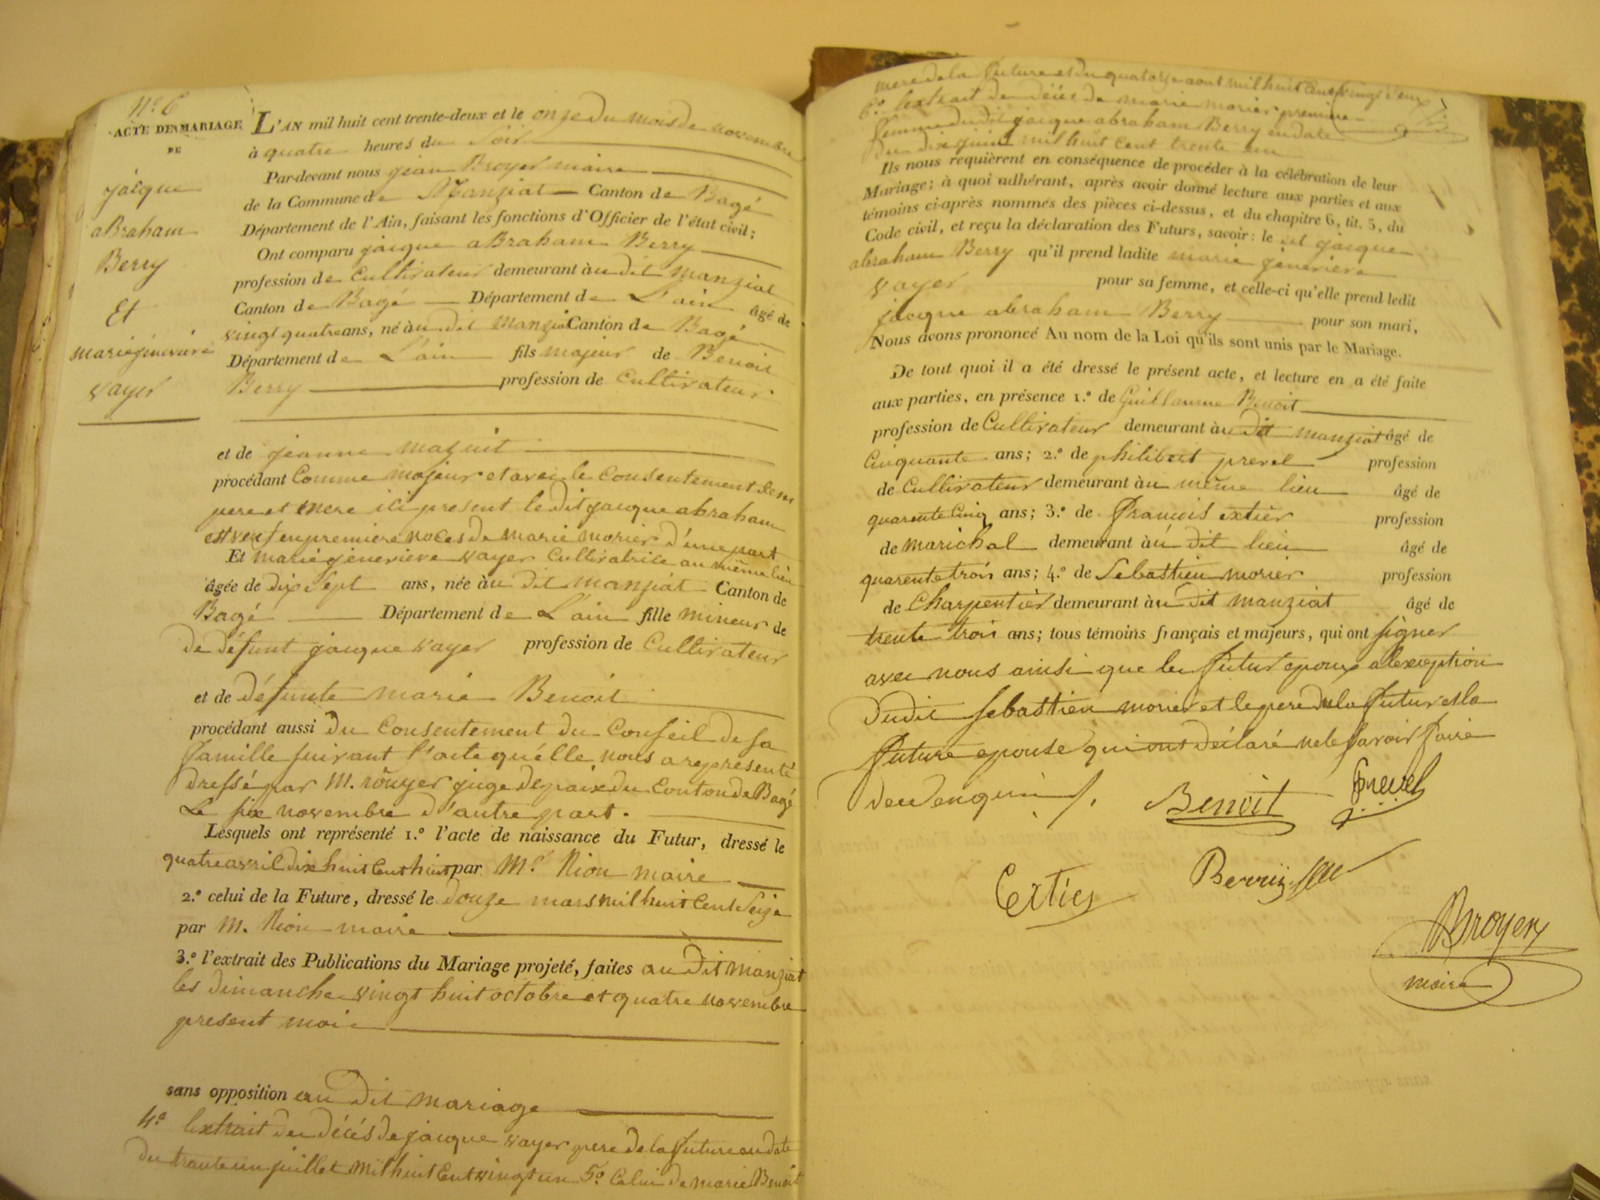 N.º 6
ACTE DE MARIAGE
DE
jacque
abraham
Berry
Et
marie genevieve
vayer
L'AN mil huit cent trente-deux et le onze du mois de novembre
à quatre heures du soir
Par-devant nous jean Broyer maire
de la Commune de Manziat Canton de Bagé
Département de l'Ain, faisant les fonctions d'Officier de l'état civil;
Ont comparu jacque abraham Berry
profession de Cultivateur demeurant à u dit manziat
Canton de Bagé Département de L'ain âgé de
vingt quatre ans, né à u dit manziat Canton de Bagé
Département de L'ain fils majeur de Benoit
Berry profession de Cultivateur
et de jeanne
procédant Comme majeur et avec le Consentement de ses
pere et mere ici present le dit jacque abraham
est veuf en premiere noces de marie morier d'une part
Et marie genevieve vayer Cultivatrice au même lieu
âgée de dix sept ans, née à u dit manziat Canton de
Bagé Département de L'ain fille mineur de
de défunt jacque vayer profession de Cultivateur
et de défunte marie Benoit
procédant aussi du Consentement du Conseil de sa
famille suivant l'acte qu'élle nous a representé
dressé par M. rouyer juge de paix du Canton de Bagé
Le six novembre d'autre part.
Lesquels ont représenté 1.º l'acte de naissance du Futur, dressé le
quatre avril dix huit Cent huit par M.r Nion maire
2.º celui de la Future, dressé le douze mars mil huit Cent Seize
par M. Nion maire
3.º l'extrait des Publications du Mariage projeté, faites au dit manziat
les dimanche vingt huit octobre et quatre novembre
present mois
sans opposition au dit mariage
4.º l'extrait de décés de jacque vayer pere de la future en date
du trante un juillet mil huit Cent vingt un 5.º Celui de marie Benoit
mere de la future et du quatorze aout mil huit Cent vingt deux
6.º l'extrait de décés de marie morier premiere
femme du dit jacque abraham Berry en date
du dix juin mil huit Cent trente un
Ils nous requièrent en conséquence de procéder à la célébration de leur
Mariage; à quoi adhérant, après avoir donné lecture aux parties et aux
témoins ci-après nommés des pièces ci-dessus, et du chapitre 6, tit. 5, du
Code civil, et reçu la déclaration des Futurs, savoir: le dit jacque
abraham Berry qu'il prend ladite marie genevieve
vayer pour sa femme, et celle-ci qu'elle prend ledit
jacque abraham Berry pour son mari,
Nous avons prononcé Au nom de la Loi qu'ils sont unis par le Mariage.
De tout quoi il a été dressé le présent acte, et lecture en a été faite
aux parties, en présence 1.º de Guillaume Benoit
profession de Cultivateur demeurant à u dit manziat âgé de
Cinquante ans; 2.º de philibert prevel profession
de Cultivateur demeurant à u même lieu âgé de
quarente Cinq ans; 3.º de francois extier profession
de marichal demeurant à u dit lieu âgé de
quarente trois ans; 4.º de Sebastien morier profession
de Charpentier demeurant à u dit manziat âgé de
trente trois ans; tous témoins français et majeurs, qui ont signer
avec nous ainsi que le futur epoux a l'exeption
Dudit Sebastien morier et le pere de la futur et la
future epouse qui ont déclaré ne le savoir faire
de ce enquis
Benoit
Prevel
Extier
Berry
Broyer
maire